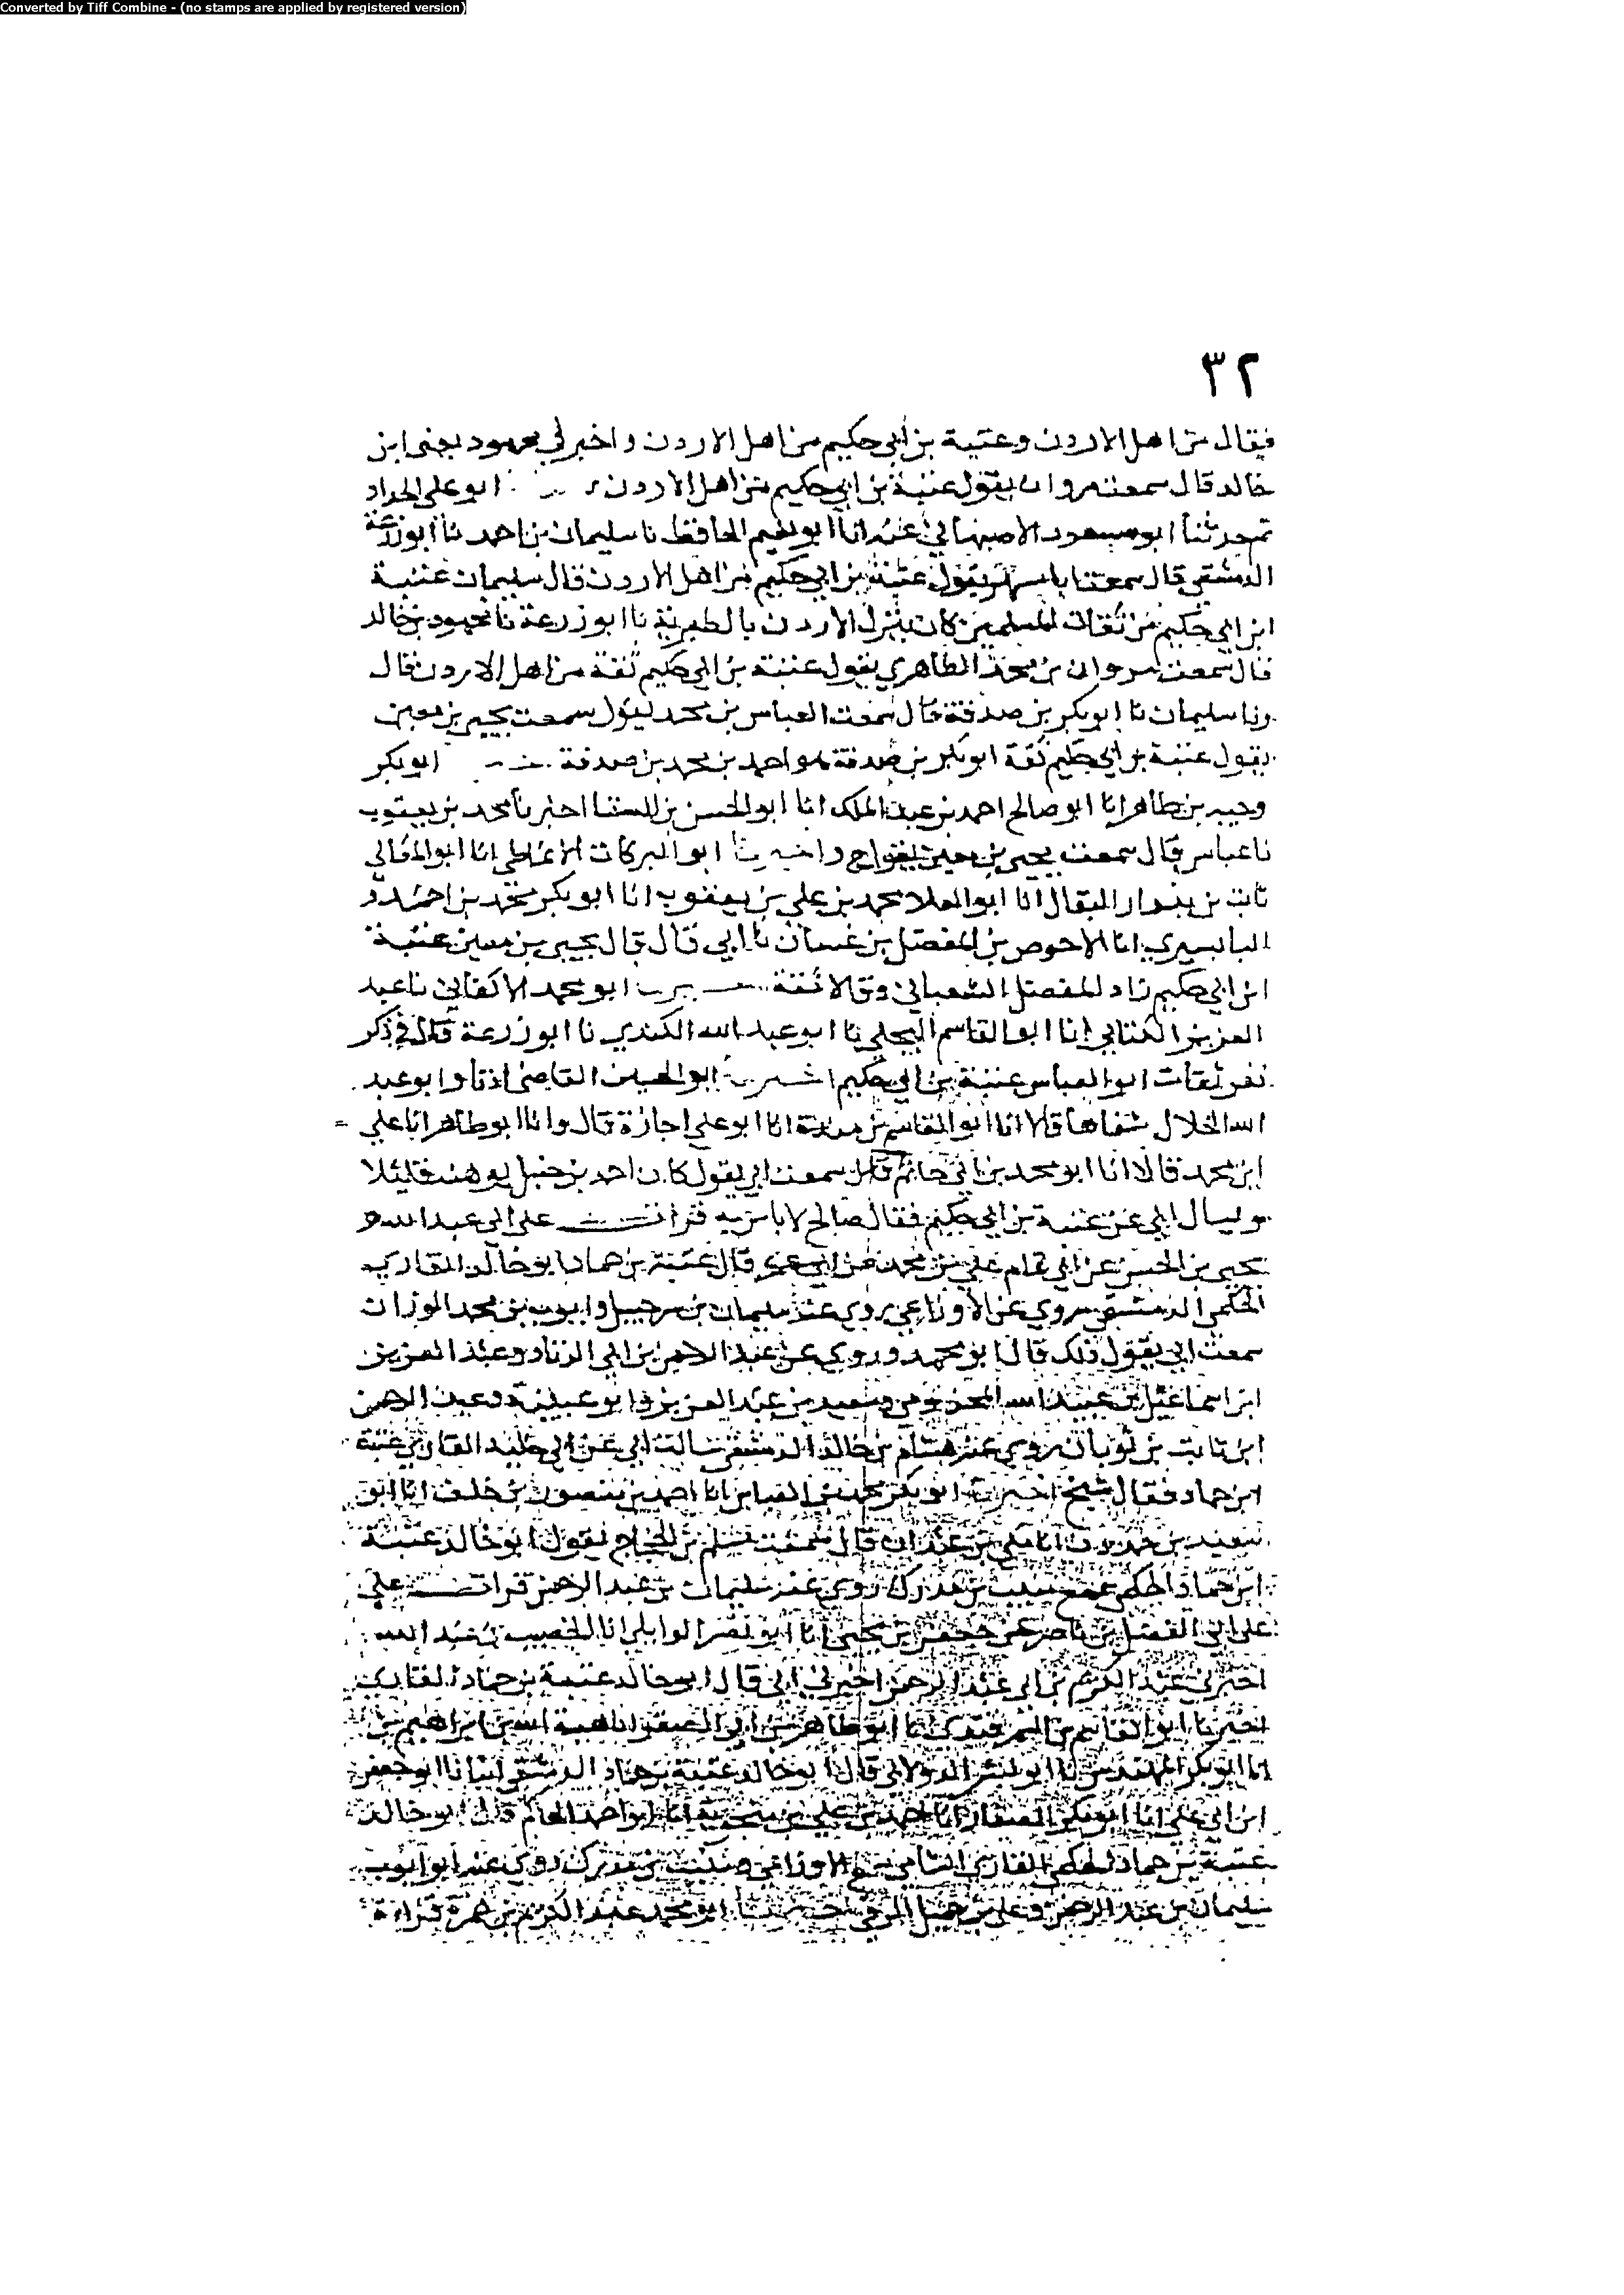 Converted by Tiff Combine - (no stamps are applied by registered version)
٣٢
فقال من اهل الاردن وعتبة بن أبي حكيم من اهل الاردن واخبرني محمود يعني ابن
خالد قال سمعت مروان يقول عتبة بن ابي حكيم من اهل الاردن ابو علي الحداد
ثم حدثنا ابو مسعود الاصبهاني عنه انا ابو نعيم الحافظ نا سليمان بن احمد نا ابو زرعة
الدمشقي قال سمعت ابا مسهر يقول عتبة بن ابي حكيم من اهل الاردن قال سليمان عتبة
ابن ابي حكيم من ثقات المسلمين كان ينزل الاردن بالطبرية نا ابو زرعة نا محمود بن خالد
قال سمعت مروان بن محمد الطاهري يقول عتبة بن ابي حكيم ثقة من اهل الاردن قال
ونا سليمان نا ابو بكر بن صدقة قال سمعت العباس بن محمد يقول سمعت يحيى بن معين
يقول عتبة بن ابي حكيم ثقة ابو بكر بن صدقة هو احمد بن محمد بن صدقة ابو بكر
وجيه بن طاهر انا ابو صالح احمد بن عبد الملك انا ابو الحسن بن السقا اخبرنا محمد بن يعقوب
نا عباس قال سمعت يحيى بن معين يقول ح واخبرنا ابو البركات الانماطي انا ابو المعالي
ثابت بن بندار البقال انا ابو العلا محمد بن علي بن يعقوب انا ابو بكر محمد بن احمد
البابسيري انا الاحوص بن المفضل بن غسان نا ابي قال قال يحيى بن معين عتبة
ابن ابي حكيم زاد المفضل الشعباني وقالا ثقة ابو محمد الاكفاني نا عبد
العزيز الكتاني انا ابو القاسم البجلي نا ابو عبد الله الكندي نا ابو زرعة قال في ذكر
نفر ثقات ابو العباس عتبة بن ابي حكيم ابو الحسين القاضي اذنا وابو عبد
الله الخلال شفاها قالا انا ابو القاسم بن مندة انا ابو علي اجازة قال وانا ابو طاهر انا علي
ابن محمد قالا انا ابو محمد بن ابي حاتم قال سمعت ابي يقول كان احمد بن حنبل يوهنه قليلا
وسال ابي عن عتبة بن ابي حكيم فقال صالح لا باس به قرات على ابي عبد الله
يحيى بن الحسن عن ابي تمام علي بن محمد عن ابي عمر قال عتبة بن حماد ابو خالد القاري
الحكمي الدمشقي روى عن الاوزاعي روى عنه سليمان بن شرحبيل وايوب بن محمد الوزان
سمعت ابي يقول ذلك قال ابو محمد وروى عن عبد الرحمن بن ابي الزناد وعبد العزيز
ابن اسماعيل بن عبيد الله المخزومي وسعيد بن عبد العزيز وابو عبيدة وعبد الرحمن
ابن ثابت بن ثوبان روى عنه هشام بن خالد الدمشقي سالت ابي عن ابي خليد القاري عتبة
ابن حماد فقال شيخ اخبرنا ابو بكر محمد بن العباس انا احمد بن منصور بن خلف انا ابو
سعيد بن حمدون انا مكي بن عبدان قال سمعت مسلم بن الحجاج يقول ابو خالد عتبة
ابن حماد الحكمي سمع منيب بن مدرك روى عنه سليمان بن عبد الرحمن قرات علي
على ابي الفضل بن ناصر عن جعفر بن يحيى انا ابو نصر الوايلي انا الخصيب بن عبد الله
اخبرني عبد الكريم بن ابي عبد الرحمن اخبرني ابي قال ابو خالد عتبة بن حماد القاري
اخبرنا ابو القاسم بن السمرقندي انا ابو طاهر بن ابي الصقر انا هبة الله بن ابراهيم بن
انا ابو بكر المهندس نا ابو بشر الدولابي قال ابو خالد عتبة بن حماد الدمشقي انبانا ابو جعفر
ابن ابي علي انا ابو بكر الصفار انا احمد بن علي بن منجويه انا ابو احمد الحاكم قال ابو خالد
عتبة بن حماد الحكمي القاري الشامي سمع الاوزاعي ومنيب بن مدرك روى عنه ابو ايوب
سليمان بن عبد الرحمن وعلي بن جميل الرقي اخبرنا ابو محمد عبد الكريم بن حمزة قراءة